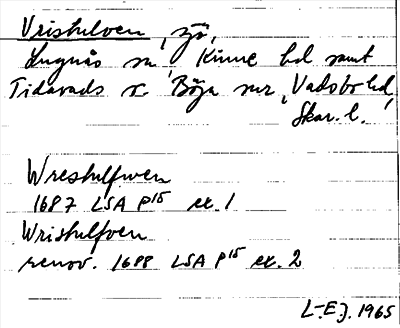 Vristulven, sjö,
Lugnås sn, Kinne hd samt
Tidavads o. Böja snr, Vadsbo hd,
Skar. l.
Wrestulfwen
1687 LSA P15 ex. 1
Wristulfven
renov. 1688 LSA P15 ex. 2
L-EJ. 1965